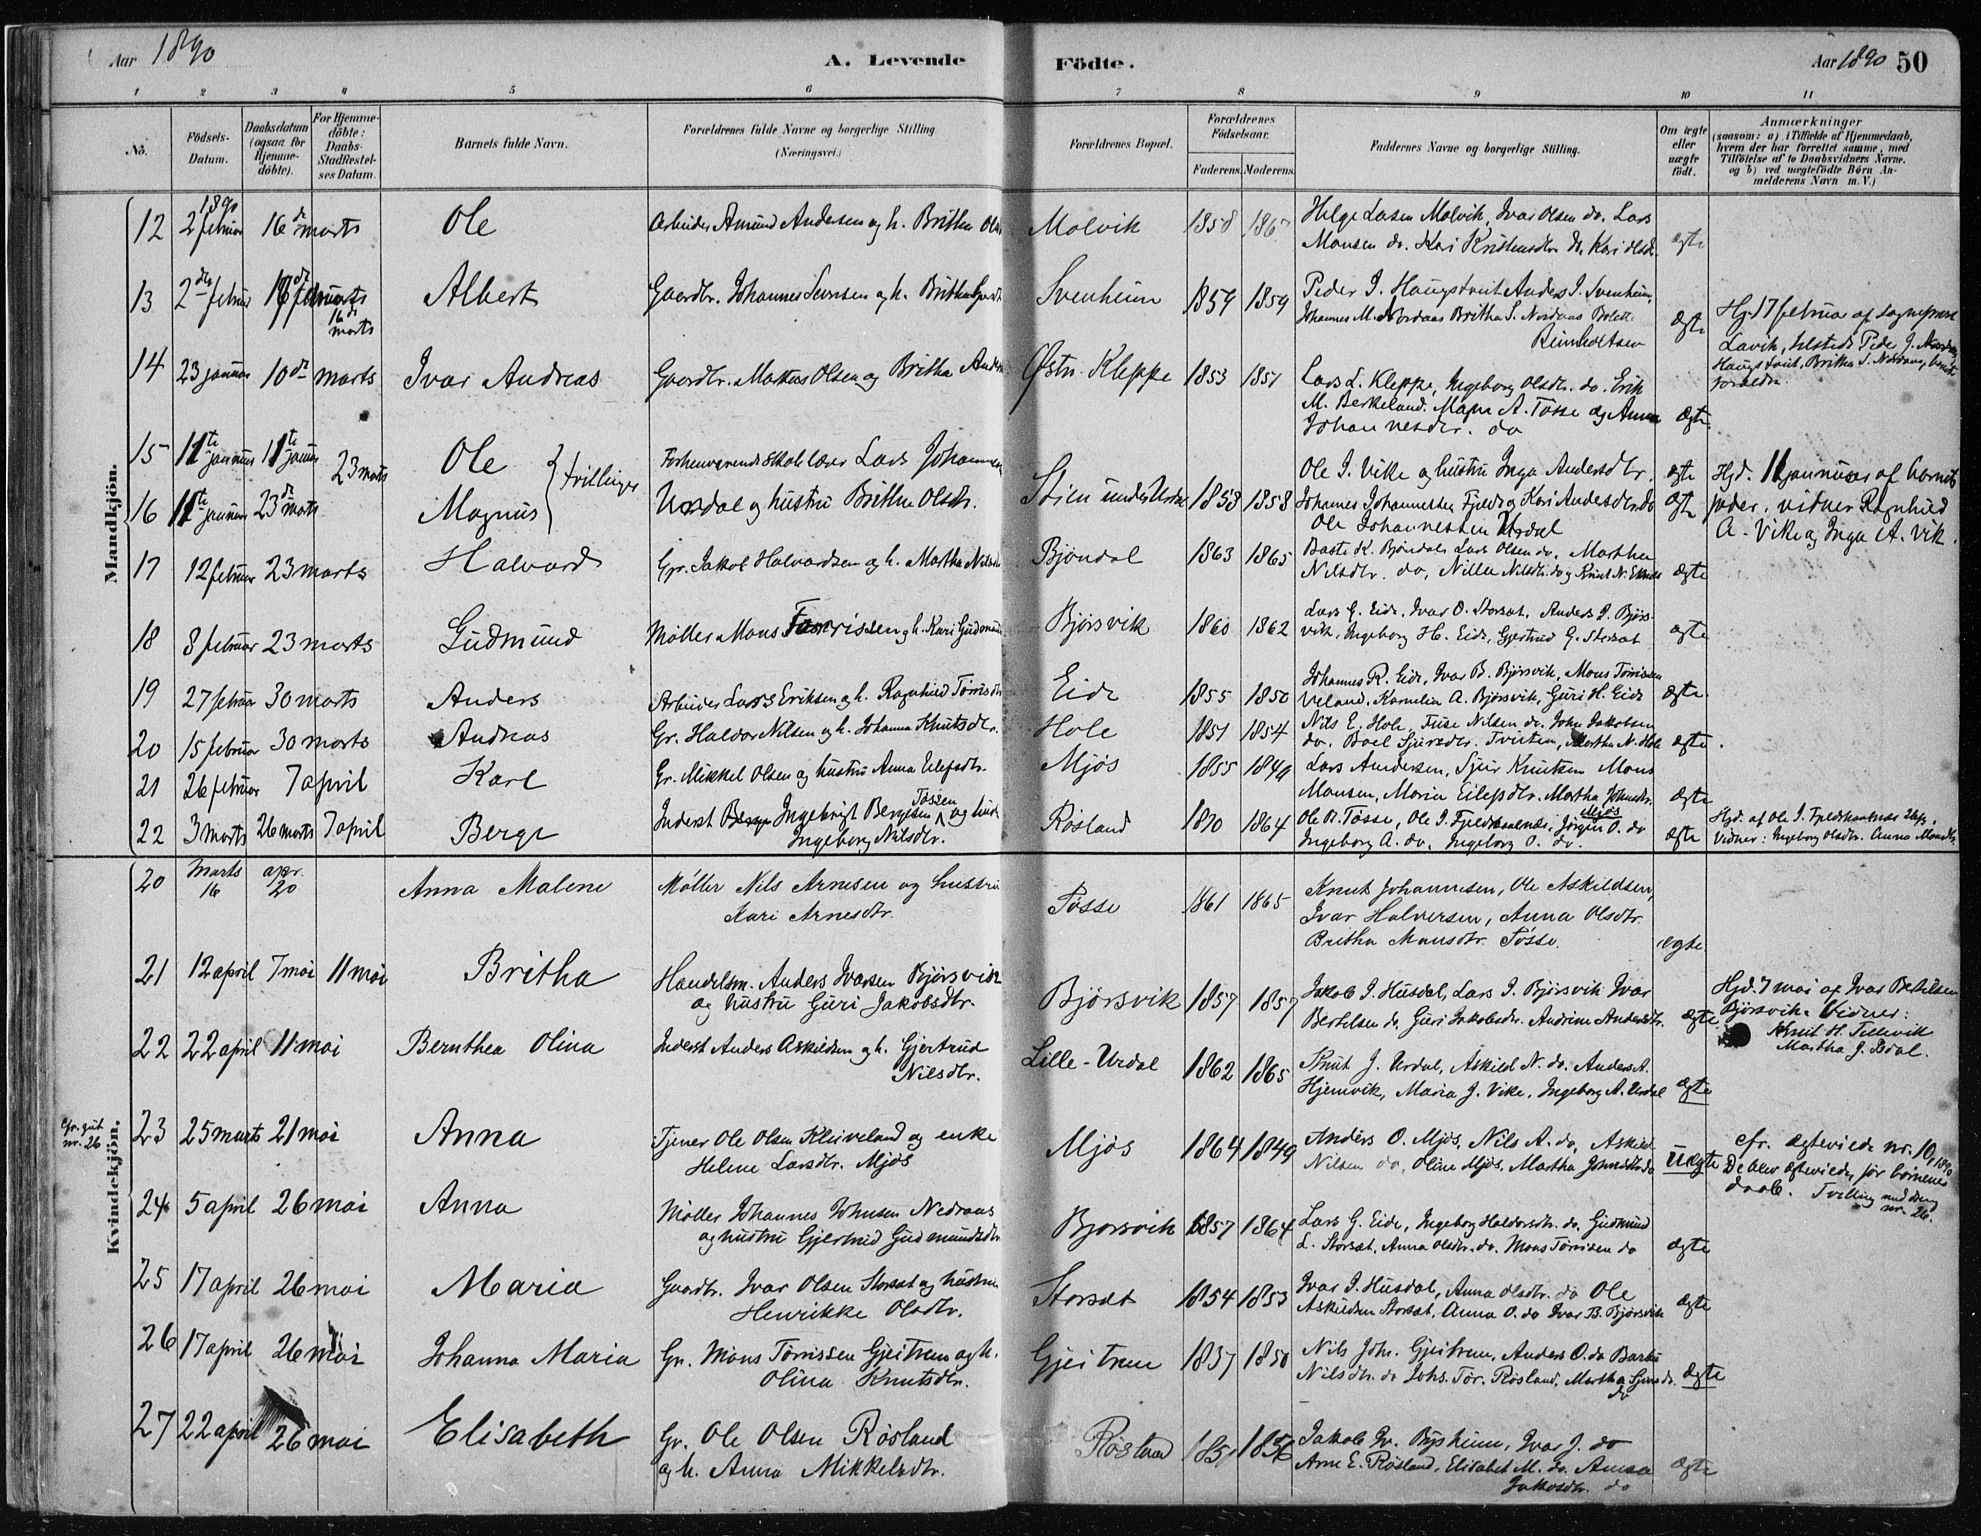 Aar 1890
A. Levende
Födte.
Aar 1890 50
1 2 3 4 5 6 7 8 9 10 11
No.
Födsels-Datum.
Daabsdatum (ogsaa for Hjemmedöbte).
For Hjemmedöbte: Daabs-Stadfæstelses Datum.
Barnets fulde Navn.
Forældrenes fulde Navne og borgerlige Stilling (Næringsvei.)
Forældrenes Bopæl.
Forældrenes Födselsaar.
Faderens. Moderens.
Faddernes Navne og borgerlige Stilling.
Om ægte eller uægte födt.
Anmærkninger
(saasom: a) i Tilfælde af Hjemmedaab, hvem der har forrettet samme, med Tilföielse af to Daabsvidners Navne. og b) ved uægtefödte Börn Anmelderens Navn m. V.)
Mandkjön.
12 1890 2 februar 16de marts Ole Arbeider Amund Andersen og h. Britha Molvik 1858 1867 Helge Larsen Molvik, Ivar Olsen do. Lars
Monsen do. Kari do. Kari Olsdr. ægte
13 2den februar 16de marts Albert Gaardbr. Johannes og h. Britha Svenheim 1859 1859 Peder J. Haugstveit Anders J. Svenheim,
Johannes M. Nordaas Britha S. Nordaas
ægte Hjd. 17 februar af sogneprest
Lavik, tilstede Peder J.
Haugstveit, Britha S.
forældre.
14 23 januar 10de marts Ivar Andreas Gaardbr. Markus Olsen og Britha Østr. Kleppe 1853 1851 Lars L. Kleppe, Ingeborg Olsdr. do. Erik
M. Berkeland. A. Tösse og Anna
Johannesdr. do ægte
15 11te januar 11te januar 23 marts Ole Forhenværende skolelærer Lars Johannesen
16 11te januar 23de marts Magnus tvillinger Urdal og hustru Britha Olsdr. under Urdal 1853 1853
Ole J. Vike og hustru Inga Andersdtr. ægte
Johannes Johannessen Fjeld og Kari Andersdtr. do ægte
Ole Johannessen Urdal
Hjd. 11 januar af barnets
fader. vidner Ragnhild
A. Vike og Inga A. Vik.
17 12 februar 23 marts Halvard Gr. Jakob Halvardsen og h. Martha Bjöndal 1863 1865 K. Bjöndal Lars Olsen do. Martha
Nilsdtr. do, Nilla Nilsdtr. do og Knut N. ægte
18 8 februar 23 marts Gudmund Möller Mons og h. Kari Björsvik 1860 1862 Lars G. Eide, Ivar O. Storsæt, Anders J. Björs-
vik, Ingeborg H. Eide, Gjertrud G. Storsæt ægte
19 27 februar 30 marts Anders Arbeider Lars Eriksen og h. Ragnhild Eide 1855 1850 Johannes R. Eide, Ivar B. Björsvik, Mons
Veland, Kornelia A. Björsvik, Guri H. Eide ægte
20 15 februar 30 marts Andreas Gr. Haldor Nilsen og h. Johanna Knutsdtr. Hole 1851 1854 Nils E. Hole, Nilsen do. John Jakobsen
do. Sjursdtr. Tveiten, Martha N. Hole ægte
21 26 februar 7 april Karl Gr. Mikkel Olsen og hustru Anna Eilefsdtr. Mjös 1855 1849 Lars Andersen, Sjur Knutsen Mons
Monsen, Maria Eilefsdtr. Martha Johnsdtr. ægte
22 3 marts 26 marts 7 april Berge Inderst Ingebrigt Bergesen Tössen og hustru
Ingeborg Nilsdtr. Rösland 1870 1864 Ole A. Tösse, Ole J. Jörgen O. do
Ingeborg A. do, Ingeborg O. do. ægte Hjd. af Ole J.
Vidner: Ingeborg Olsdtr. Anna
Kvindekjön.
20 marts 16 apr. 20 Anna Malene Möller Nils Arnesen og hustru
Kari Arnesdtr. Tösse 1861 1865 Knut Johannesen, Ole Askildsen,
Ivar Halversen, Anna Olsdtr.
Britha Monsdtr. Tösse. ægte
21 12 april 7 mai 11 mai Britha Handelsm. Anders Ivarsen Björsvik
og hustru Guri Jakobsdtr. Björsvik 1857 1857 Jakob J. Husdal, Lars J. Björsvik Ivar
Bertelsen do, Guri Jakobsdtr. Andrine Andersdtr. ægte Hjd. 7 mai af Ivar Bertelsen
Björsvik. Vidner:
Knut H.
Martha J.
22 22 april 11 mai Bernthea Olina Inderst Anders Askildsen og h. Gjertrud
Nilsdtr. Lille-Urdal 1862 1865 Knut J. Urdal, Askild N. do. Anders A.
Hjemvik, Maria J. Vike, Ingeborg A. Urdal ægte
cfr. gut
nr. 26
23 25 marts 21 mai Anna Tjener Ole Olsen Kleiveland og enke
Helene Larsdtr. Mjös Mjös 1864 1849 Anders O. Mjös, Nils A. do, Askild
Nilsen do, Oline Mjös, Martha do Uægte cfr. ægteviede nr. 10, 1890
De blev ægteviede för börnenes
daab. Tvilling med dreng
nr. 26.
24 5 april 26 mai Anna Möller Johannes Johnsen Nedraas
og hustru Gjertrud Gudmundsdtr. Björsvik 1857 1864 Lars G. Eide, Ingeborg Haldorsdtr. do. Gudmund
L. Storsæt, Anna Olsdtr. do. Mons Törrisen do ægte
25 17 april 26 mai Maria Gaardbr. Ivar Olsen Storsæt og hustru
Henrikke Olsdtr. Storsæt 1854 1853 Ivar J. Husdal, Anna Olsdtr. do Ole
Askildsen Storsæt, Anna O. do Ivar B. Björsvik ægte
26 17 april 26 mai Johanna Maria Gr. Mons Törrissen Gjeitrem og h.
Olina Knutsdtr. Gjeitrem 1857 1850 Nils Joh. Gjeitrem, Anders O. do
Nilsdtr. do Johs. Tör. Rösland, Martha do ægte
27 22 april 26 mai Elisabeth Gr. Ole Olsen Rösland
og h. Anna Mikkelsdtr. Rösland 1851 1856 Jakob Iv. Ivar J. do
Arne E. Rösland, Elisabet M. do. Anna
Jakobsdtr. do ægte